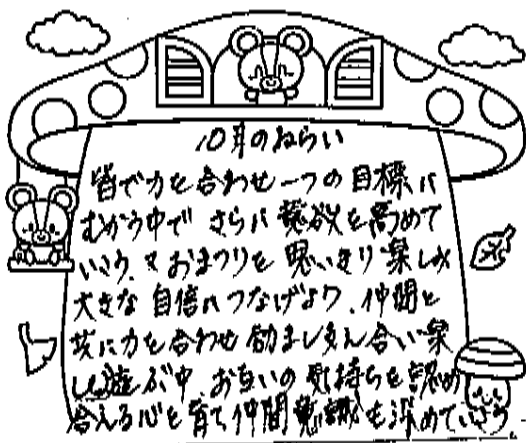 10月のねらい
皆で力を合わせ一つの目標に
むかう中で さらに意欲を高めて
いこう。又おまつりを思いきり楽しみ
大きな自信につなげよう。仲間と
共に力を合わせ励まし支え合い楽
しく遊ぶ中、お互いの気持ちを認め
合える心を育て仲間意識を深めていこう。